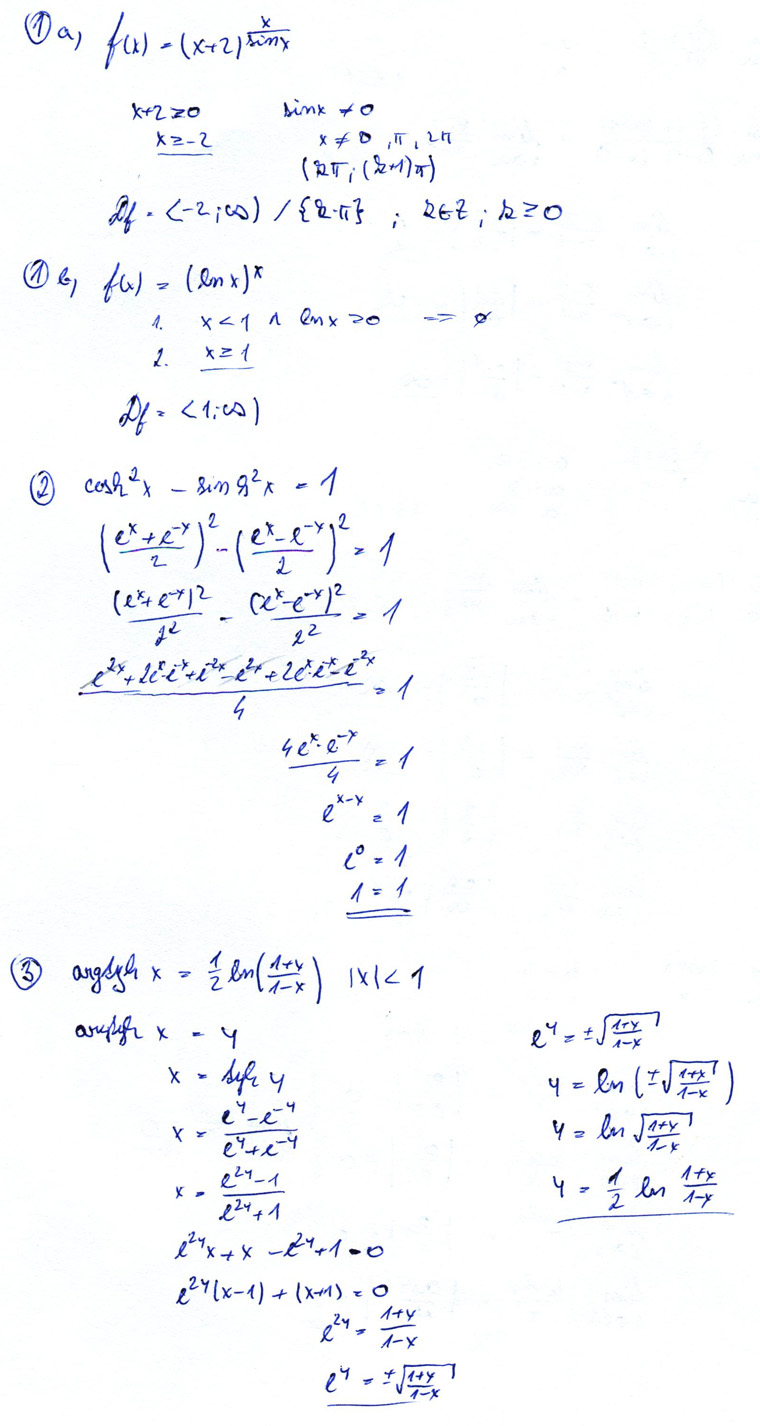 ① a, f(x) = (x+2)^(x/sinx)
x+2 ≥ 0 sinx ≠ 0
x ≥ -2 x ≠ 0, π, 2π
(kπ; (k+1)π)
Df = <-2; ∞) / {k·π} ; k∈Z ; k ≥ 0
① b, f(x) = (ln x)^x
1. x < 1 ∧ ln x ≥ 0 => ∅
2. x ≥ 1
Df = <1; ∞)
② cosh²x - sinh²x = 1
((e^x + e^-x)/2)² - ((e^x - e^-x)/2)² = 1
(e^x + e^-x)²/2² - (e^x - e^-x)²/2² = 1
(e^2x + 2e^x·e^-x + e^-2x - e^2x + 2e^x·e^-x - e^-2x)/4 = 1
4e^x·e^-x/4 = 1
e^(x-x) = 1
e^0 = 1
1 = 1
③ argtgh x = 1/2 ln((1+x)/(1-x)) |x| < 1
argtgh x = y
x = tgh y
x = (e^y - e^-y)/(e^y + e^-y)
x = (e^2y - 1)/(e^2y + 1)
e^2y x + x - e^2y + 1 = 0
e^2y (x-1) + (x+1) = 0
e^2y = (1+x)/(1-x)
e^y = ±√((1+x)/(1-x))
e^y = ±√((1+x)/(1-x))
y = ln(±√((1+x)/(1-x)))
y = ln √((1+x)/(1-x))
y = 1/2 ln (1+x)/(1-x)